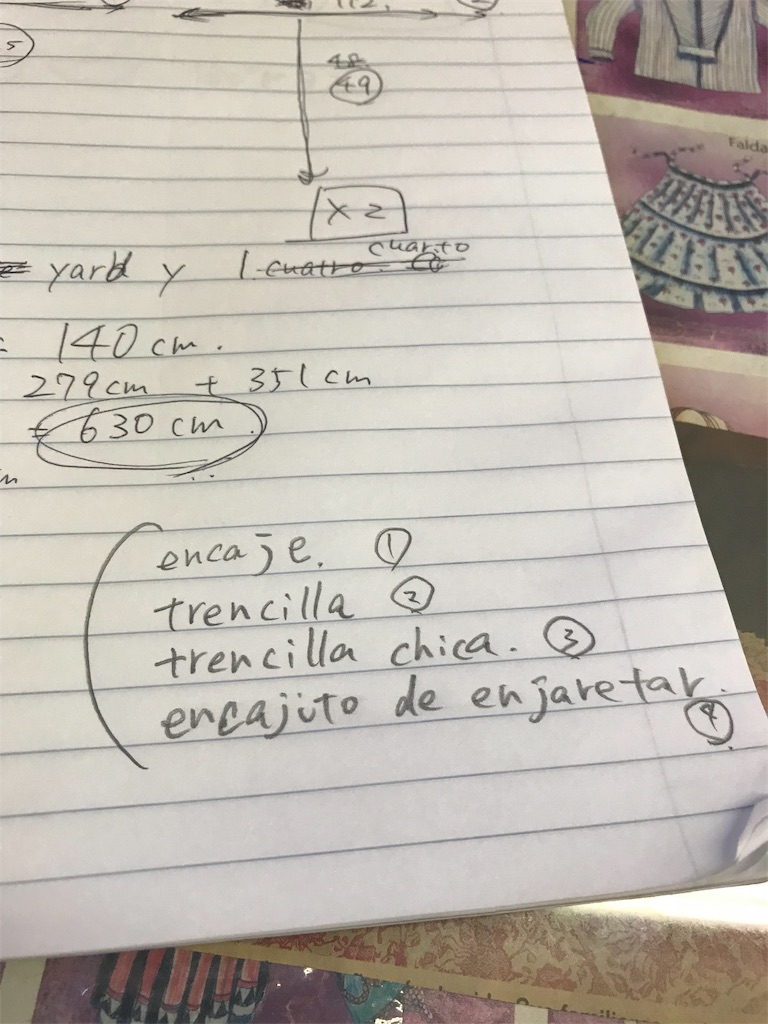 5
48
49
X 2
cuarto
yard y 1 cuatro
= 140 cm.
279cm + 351cm
= 630 cm.
encaje. ①
trencilla ②
trencilla chica. ③
encajito de enjaretar.
④
Falda